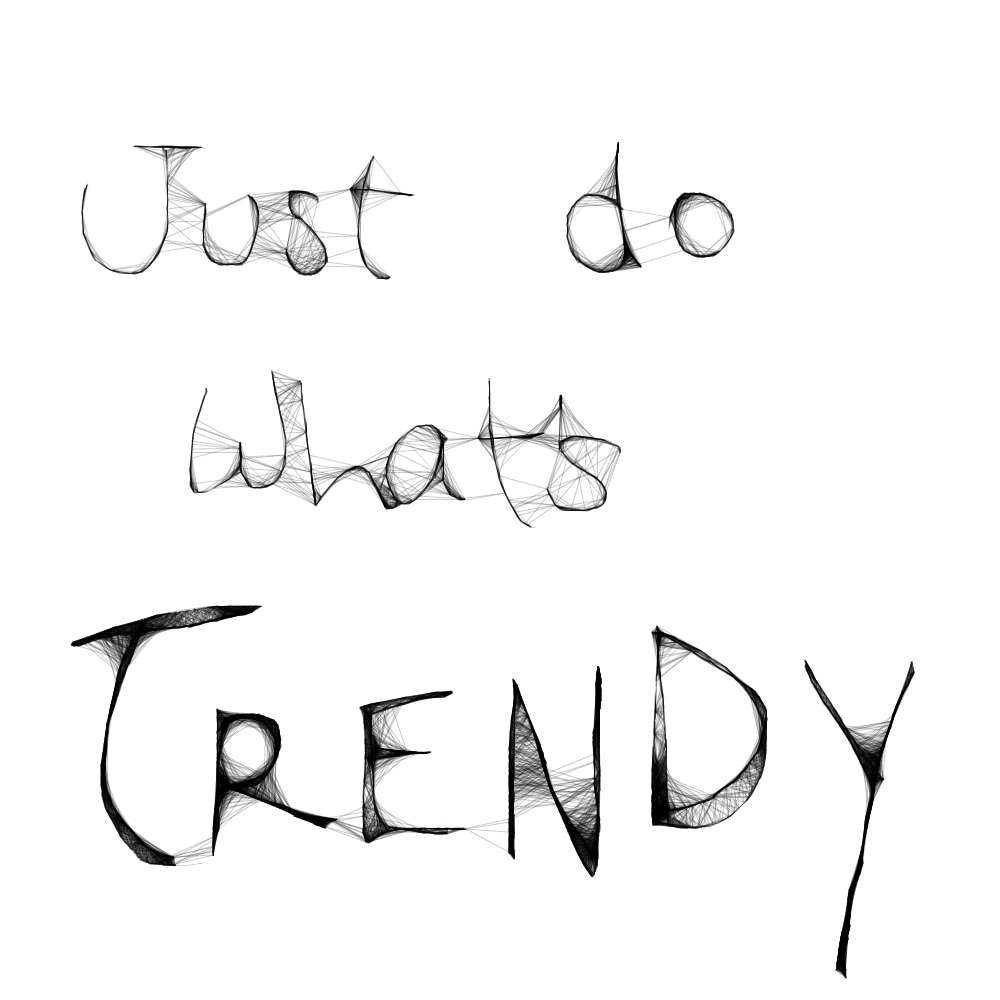 Just do
what's
TRENDY